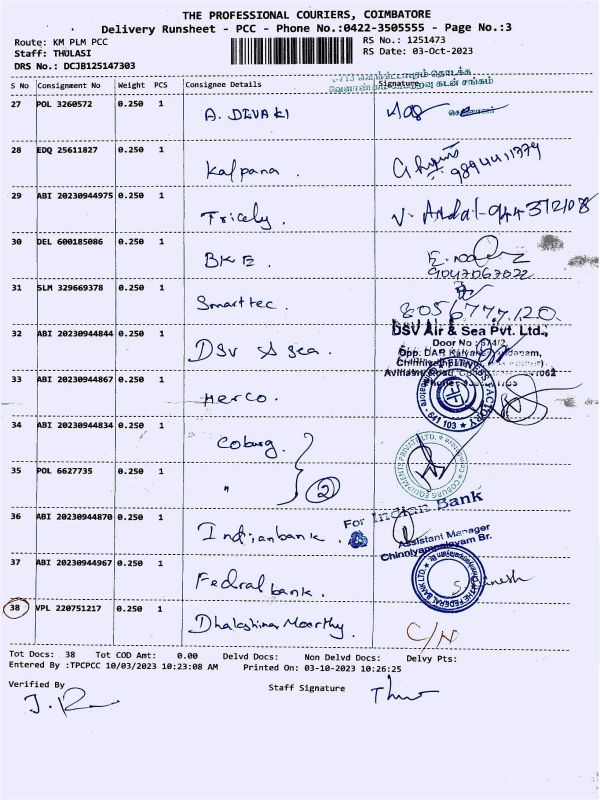 THE PROFESSIONAL COURIERS, COIMBATORE
Delivery Runsheet - PCC - Phone No.:0422-3505555 - Page No.:3
Route: KM PLM PCC
RS No.: 1251473
Staff: THOLASI
RS Date: 03-Oct-2023
DRS No.: DCJB125147303
S No Consignment No Weight PCS Consignee Details Signature
27 POL 3260572 0.250 1 A. DEVAKI
28 EDQ 25611827 0.250 1 Kalpana. 9894411379
29 ABI 20230944975 0.250 1 Tricely.
30 DEL 600185086 0.250 1 BKE. 9047067022
31 SLM 329669378 0.250 1 Smarttec. 8056777120
32 ABI 20230944844 0.250 1 DSV A sea. DSV Air & Sea Pvt. Ltd.,
33 ABI 20230944867 0.250 1 Herco. FACTORY 641 103
34 ABI 20230944834 0.250 1 Coburg. COBURG EQUIPMENTS PRIVATE LTD.
35 POL 6627735 0.250 1 " 2
36 ABI 20230944870 0.250 1 Indianbank. For Indian Bank
Assistant Manager
Chinniyampalayam Br.
37 ABI 20230944967 0.250 1 Fedral bank. THE FEDERAL BANK LTD.
38 VPL 220751217 0.250 1 Dhakshina Moorthy. C/N
Tot Docs: 38 Tot COD Amt: 0.00 Delvd Docs: Non Delvd Docs: Delvy Pts:
Entered By :TPCPCC 10/03/2023 10:23:08 AM Printed On: 03-10-2023 10:26:25
Verified By
Staff Signature